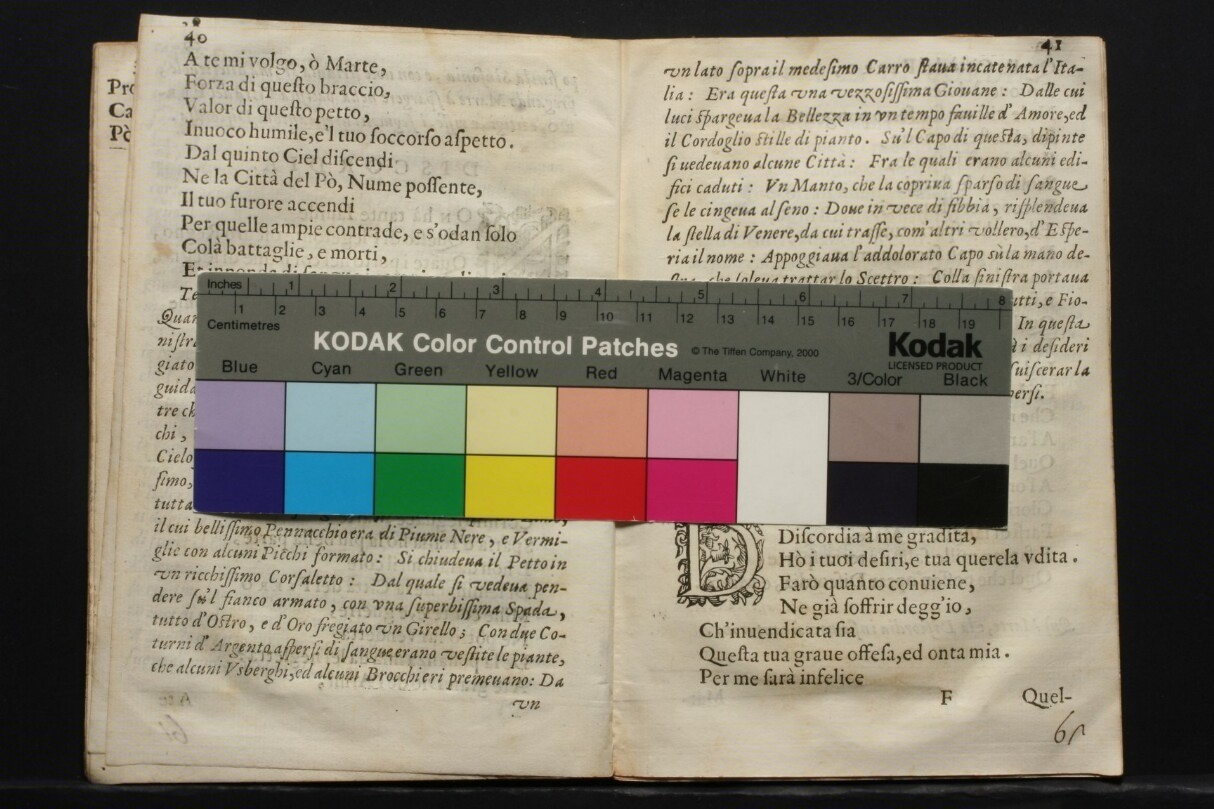 40
A te mi volgo, ò Marte,
Forza di queſto braccio,
Valor di queſto petto,
Inuoco humile, e'l tuo ſoccorſo aſpetto.
Dal quinto Ciel diſcendi
Ne la Città del Pò, Nume poſſente,
Il tuo furore accendi
Per quelle ampie contrade, e s'odan ſolo
Colà battaglie, e morti,
Te
Quan
niſtr
giato
guida
tre ch
chi,
Cielo
ſimo,
tutta
il cui belliſſimo Pennacchio era di Piume Nere, e Vermi-
glie con alcuni Picchi formato: Si chiudeua il Petto in
vn ricchiſſimo Corſaletto: Dal quale ſi vedeua pen-
dere ſu'l fianco armato, con vna ſuperbiſſima Spada,
tutto d'Oſtro, e d'Oro fregiato vn Girello; Con due Co-
turni d'Argento aſperſi di ſangue erano veſtite le piante,
che alcuni Vsberghi, ed alcuni Brocchieri premeuano: Da
vn
Pro
Ca
Pò
41
vn lato ſopra il medeſimo Carro ſtaua incatenata l'Ita-
lia: Era queſta vna vezzoſiſſima Giouane: Dalle cui
luci ſpargeua la Bellezza in vn tempo fauille d'Amore, ed
il Cordoglio ſtille di pianto. Su'l Capo di queſta, dipinte
ſi uedeuano alcune Città: Fra le quali erano alcuni edi-
fici caduti: Vn Manto, che la copriua ſparſo di ſangue
ſe le cingeua al ſeno: Doue in vece di fibbia, riſplendeua
la ſtella di Venere, da cui traſſe, com'altri vollero, d'Eſpe-
ria il nome: Appoggiaua l'addolorato Capo sù la mano de-
ſtra, che ſoleua trattar lo Scettro: Colla ſiniſtra portaua
utti, e Fio-
In queſta
i deſideri
ſuiſcerar la
perſi.
Diſcordia à me gradita,
Hò i tuoi deſiri, e tua querela vdita.
Farò quanto conuiene,
Ne già ſoffrir degg'io,
Ch'inuendicata ſia
Queſta tua graue offeſa, ed onta mia.
Per me ſarà infelice
F Quel-
Inches 1 2 3 4 5 6 7 8
Centimetres 1 2 3 4 5 6 7 8 9 10 11 12 13 14 15 16 17 18 19
KODAK Color Control Patches © The Tiffen Company, 2000 Kodak
LICENSED PRODUCT
Blue Cyan Green Yellow Red Magenta White 3/Color Black